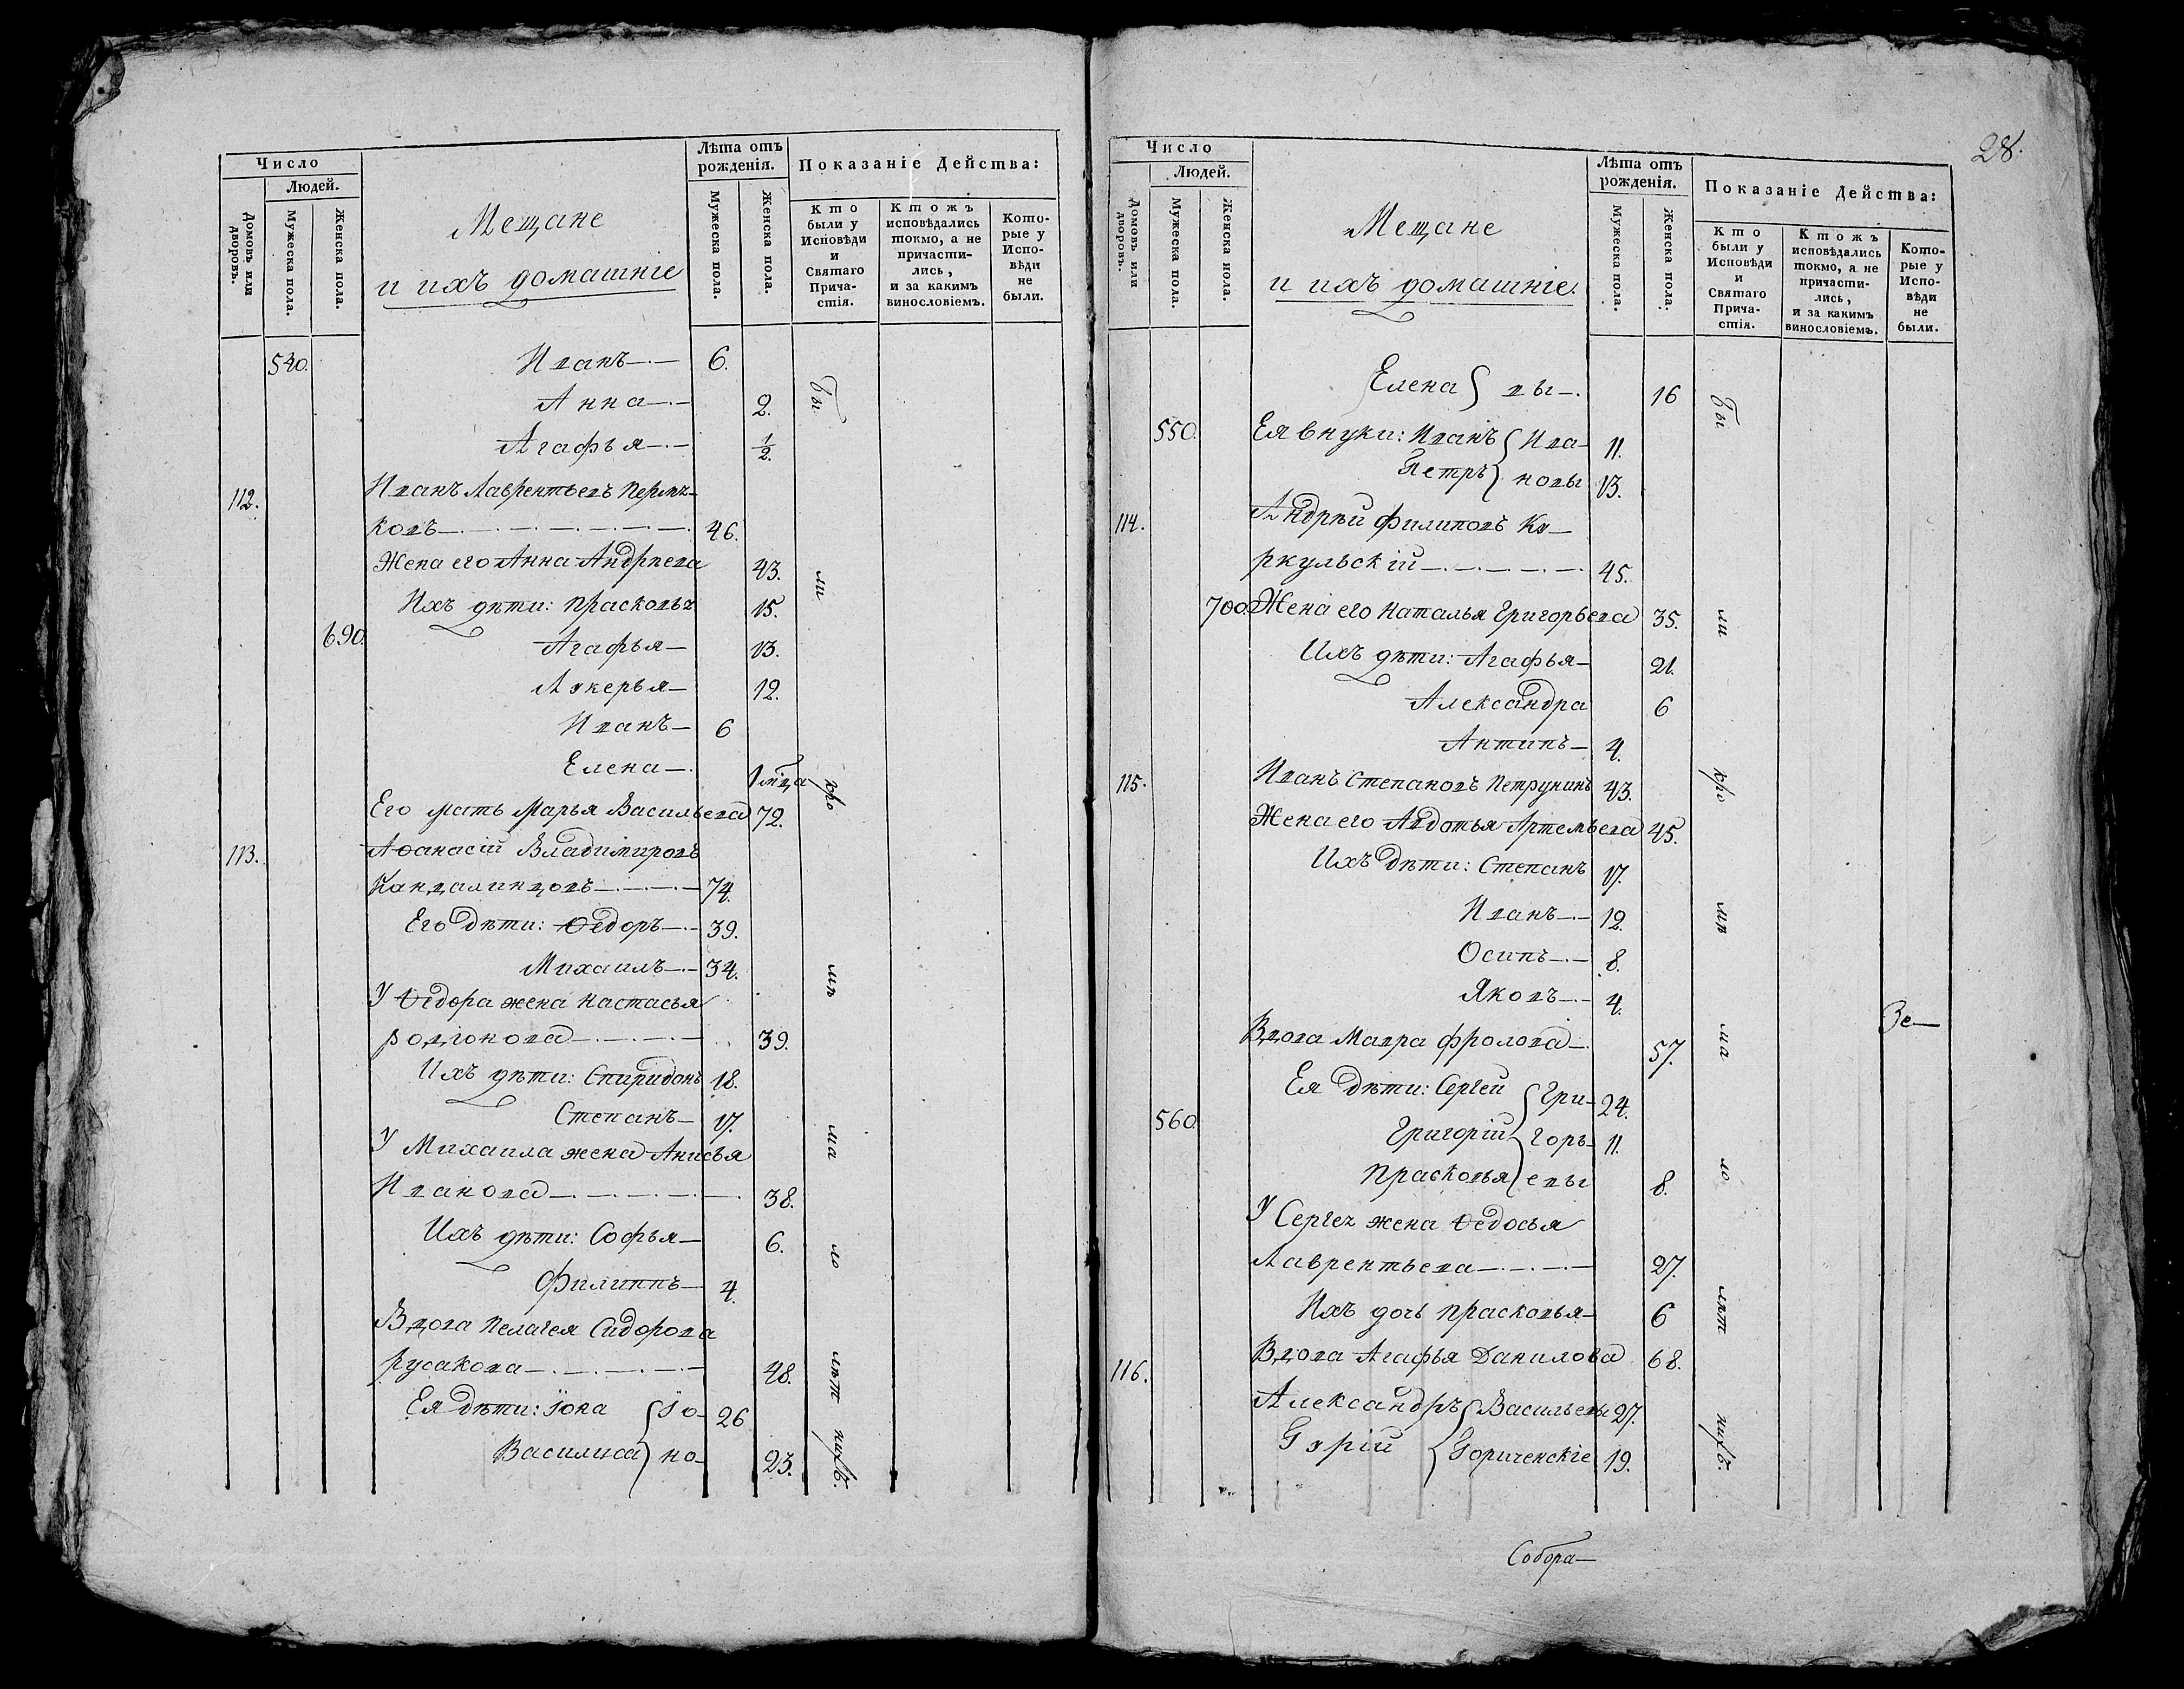 Число
Людей.
Домовъ или дворовъ.
Мужеска пола.
Женска пола.
Мещане
и ихъ домашніе
Лѣта отъ рожденія.
Мужеска пола.
Женска пола.
Показаніе Действа:
Кто были у Исповѣди и Святаго Причастія.
Ктожъ исповѣдались токмо, а не причастились, и за какимъ винословіемъ.
Которые у Исповѣди не были.
540. Иванъ 6.
Анна 2.
Агафья 1/2.
112. Иванъ Лаврентьевъ
ковъ 46.
Жена его Анна Андреева 43.
Ихъ дѣти: Прасковья 15.
690. Агафья 13.
Лукерья 12.
Иванъ 6
Елена 1 мца
Его мать Марья Васильева 72.
113. Аѳанасій Владиміровъ
Кандалинцовъ 74.
Его дѣти: Ѳедоръ 39.
Михаилъ 34.
У Ѳедора жена Настасья
Родіонова 39.
Ихъ дѣти: Спиридонъ 18.
Степанъ 17.
У Михаила жена Анисья
Иванова 38.
Ихъ дѣти: Софья 6.
Филиппъ 4.
Вдова Пелагея Сидорова
Русакова 48.
Ея дѣти: Іона Іо- 26
Василиса но- 23.
бы ли при ис по лѣт нихъ.
28.
Число
Людей.
Домовъ или дворовъ.
Мужеска пола.
Женска пола.
Мещане
и ихъ домашніе.
Лѣта отъ рожденія.
Мужеска пола.
Женска пола.
Показаніе Действа:
Кто были у Исповѣди и Святаго Причастія.
Ктожъ исповѣдались токмо, а не причастились, и за какимъ винословіемъ.
Которые у Исповѣди не были.
Елена вы 16
550. Ея внуки: Иванъ Ива- 11.
Петръ новы 13.
114. Андрѣй Филиповъ Ку-
ркульскій 45.
700. Жена его Наталья Григорьева 35.
Ихъ дѣти: Агафья 21.
Александра 6
Антипъ 4.
115. Иванъ Степановъ Петрунинъ 43.
Жена его Авдотья Артемьева 45.
Ихъ дѣти: Степанъ 17.
Иванъ 12.
Осипъ 8.
Яковъ 4.
Вдова Мавра Фролова 57.
Ея дѣти: Сергей Гри- 24.
560. Григорій горь- 11.
Прасковья евы 8.
У Сергея жена Ѳедосья
Лаврентьева 27.
Ихъ дочь Прасковья 6
Вдова Агафья Данилова 68.
116. Александръ Васильевы 27.
Юрій Гориченскіе 19.
Собора-